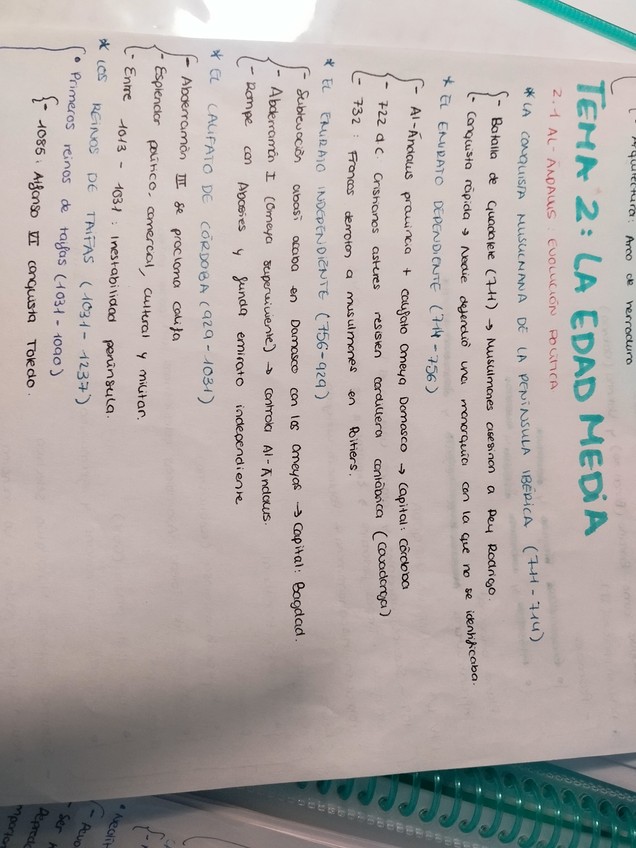 Arquitectura: Arco de herradura
TEMA 2: LA EDAD MEDIA
2.1 AL-ÁNDALUS: EVOLUCIÓN POLÍTICA
* LA CONQUISTA MUSULMANA DE LA PENÍNSULA IBÉRICA (711-714)
- Batalla de Guadalete (711) → Musulmanes asesinan a Rey Rodrigo.
- Conquista rápida → Nadie defendió una monarquía con la que no se identificaba.
* EL EMIRATO DEPENDIENTE (714-756)
- Al-Ándalus provincia + califato Omeya Damasco → Capital: Córdoba
- 722 d.C. Cristianos astures resisten cordillera cantábrica (Covadonga)
- 732: Francos derrotan a musulmanes en Poitiers.
* EL EMIRATO INDEPENDIENTE (756-929)
- Sublevación abasí acaba en Damasco con los Omeyas → Capital: Bagdad.
- Abderramán I (Omeya superviviente) → controla Al-Ándalus.
- Rompe con Abasíes y funda emirato independiente
* EL CALIFATO DE CÓRDOBA (929-1031)
- Abderramán III se proclama califa
- Esplendor político, comercial, cultural y militar.
- Entre 1013 - 1031: inestabilidad península.
* LOS REINOS DE TAIFAS (1031-1237)
• Primeros reinos de taifas (1031-1090)
- 1085: Alfonso VI conquista Toledo.